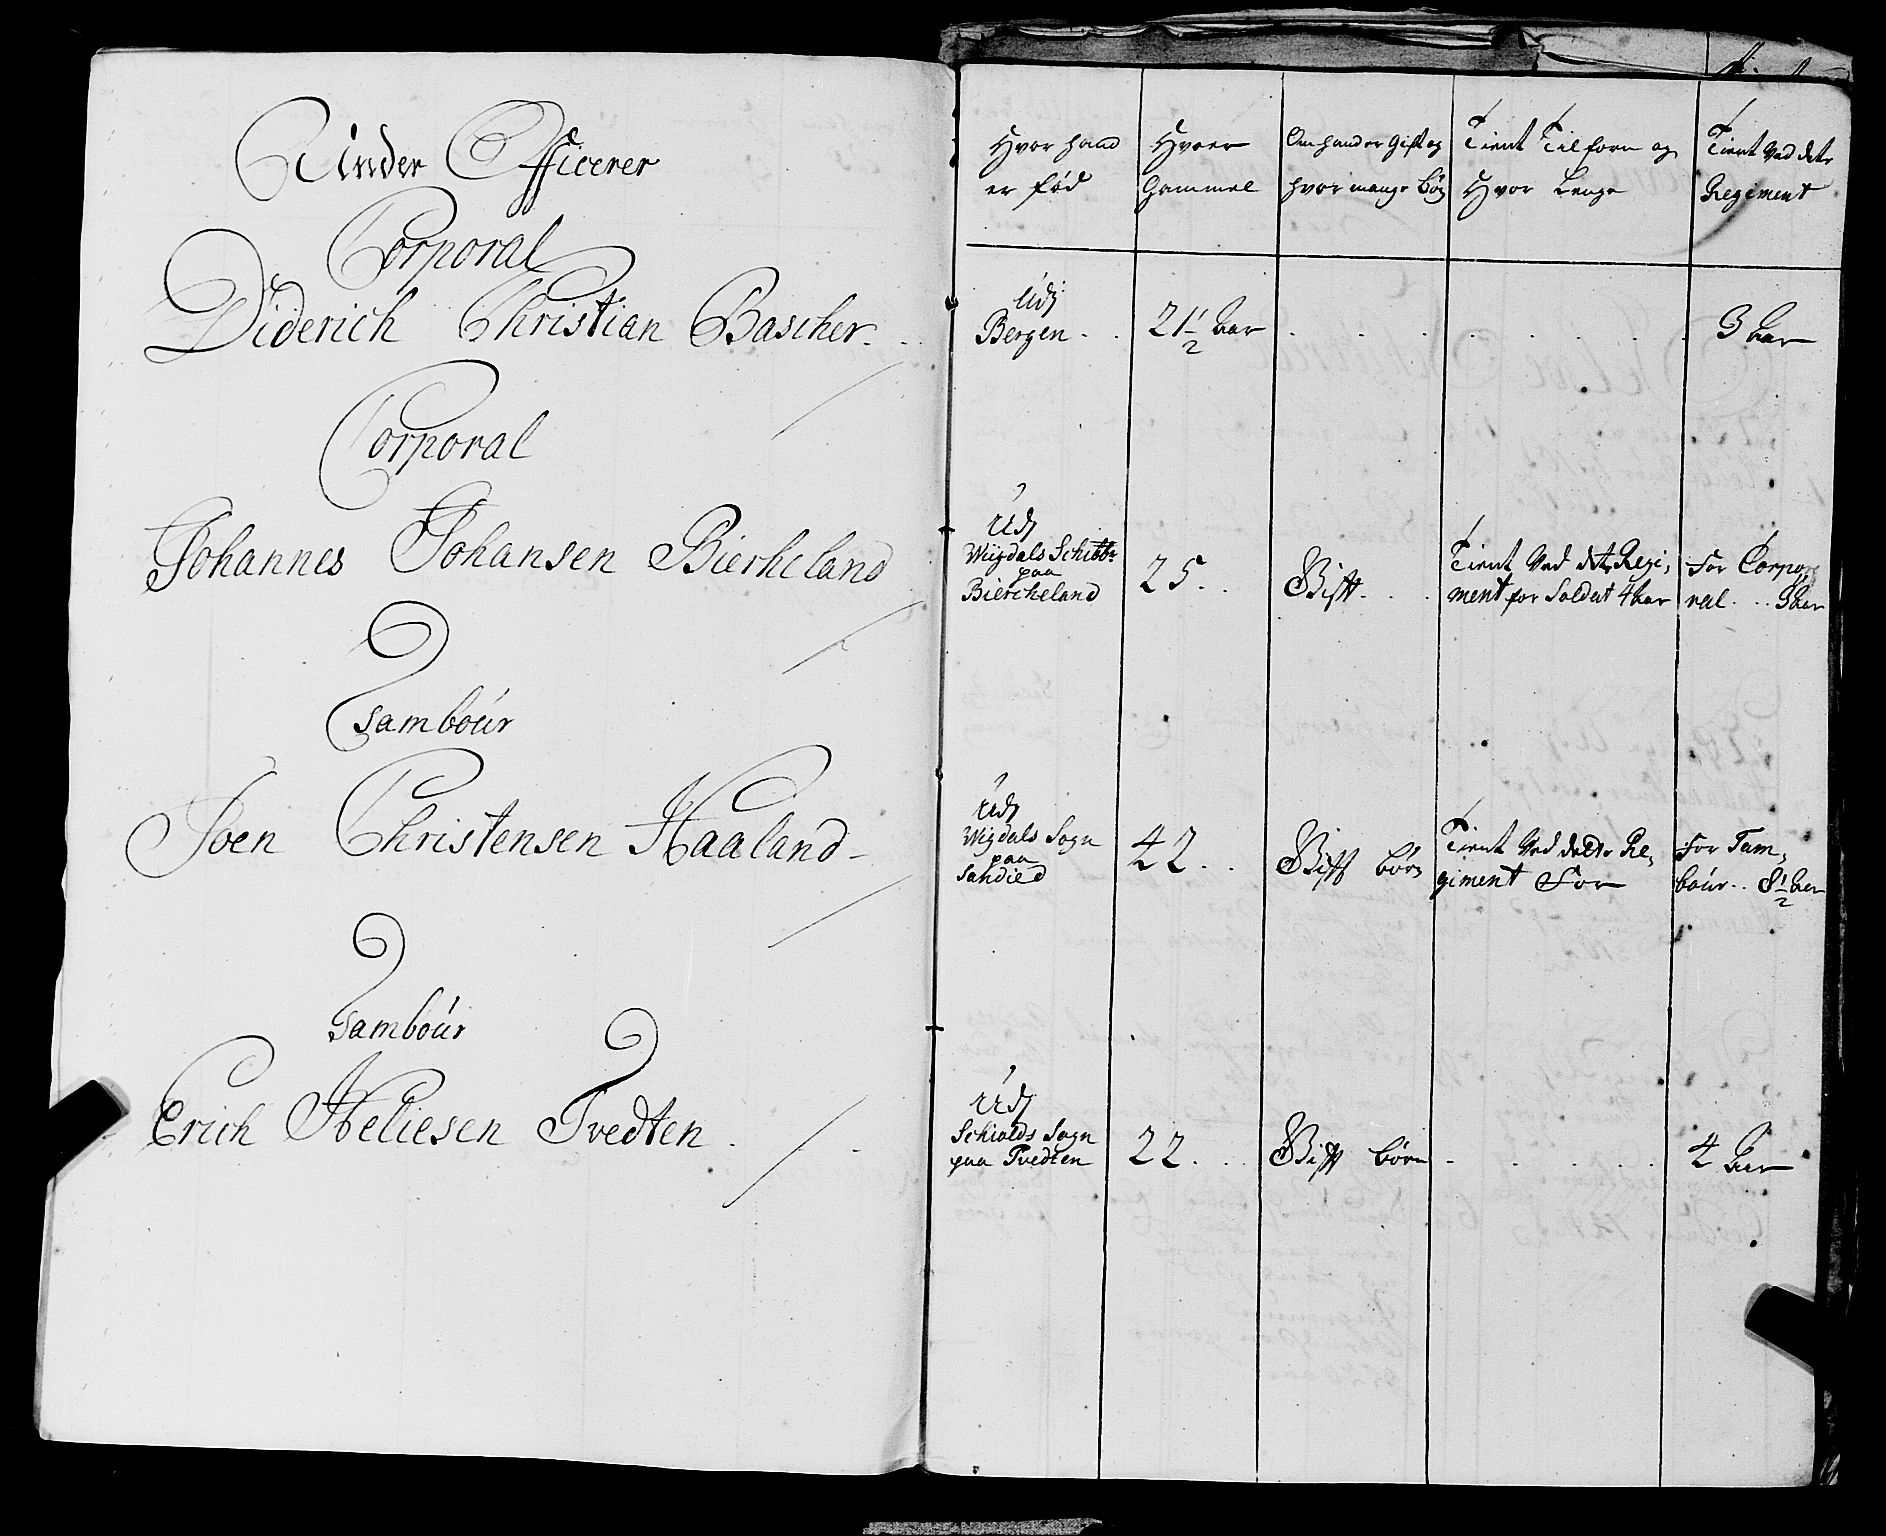 Under Officerer
Corporal
Diderich Christian Bascher
Corporal
Johannes Johansen Bierkeland
Tamboúr
Joen Christensen Haaland
Tamboúr
Erich Heliesen Tvedten
Hvor hand
er fød
Hvor
Gammel
Om hand er Gift og
hvor mange Børn
Tient Tilforn og
Hvor Lenge
Tient Ved dete
Regiment
Udj
Bergen
21 1/2 Aar
3 Aar
Udj
Wigdals Schibbr
paa
Biercheland
25
Gift
Tient Ved dete Regi,
ment for Soldat 4 Aar
For Corpo,
ral 3 Aar
Udj
Wigdals Sogn
paa
Sandied
42
Gift børn
Tient Ved dete Re,
giment For
For Tam,
boúr 8 1/2 Aar
Udj
Schiolds Sogn
paa Tvedten
22
Gift børn
4 Aar